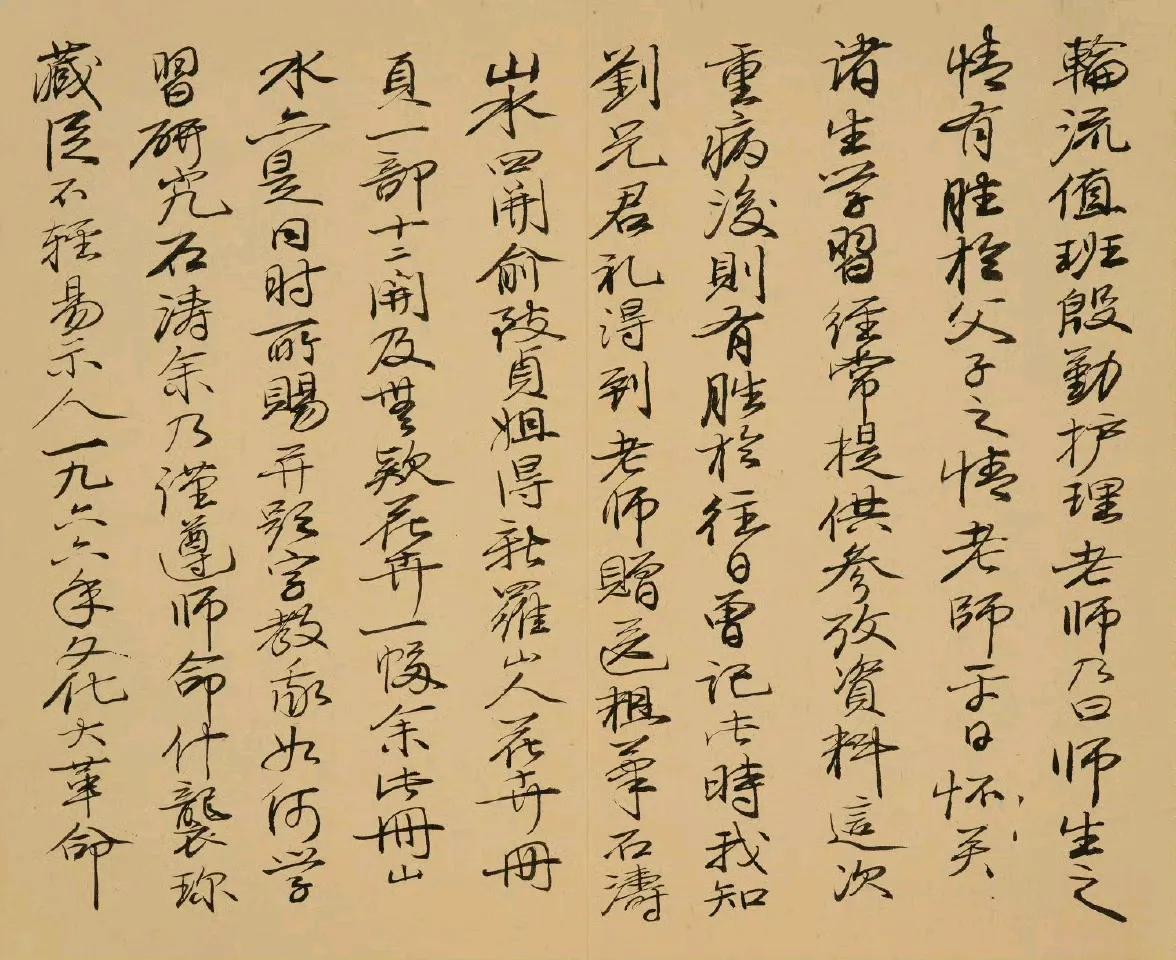 輪流值班殷勤护理老师乃曰师生之
情有胜於父子之情老師平日怀关
诸生学習経常提供参攷資料這次
重病後則有胜於往日曾记此時我知
劉兄君礼得到老师贈送粗笔石濤
山水四開俞致貞姐得新羅山人花卉冊
頁一部十二開及無款花卉一幅余此冊山
水亦是同时所賜并题字教我如何学
習研究石涛余乃谨遵师命什襲珍
藏
不輕易示人一九六六年文化大革命